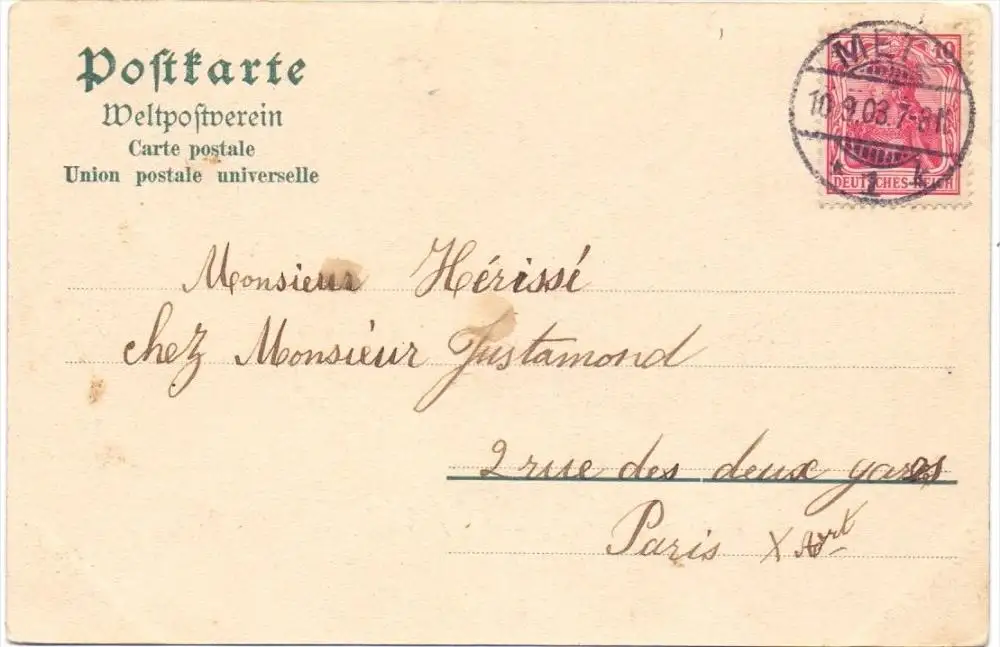 Postkarte
Weltpostverein
Carte postale
Union postale universelle
10
MET
10.9.03.7-8N.
* 1 k
DEUTSCHES REICH
Monsieur Hérissé
chez Monsieur Justamond
2 rue des deux gares
Paris X Arrt